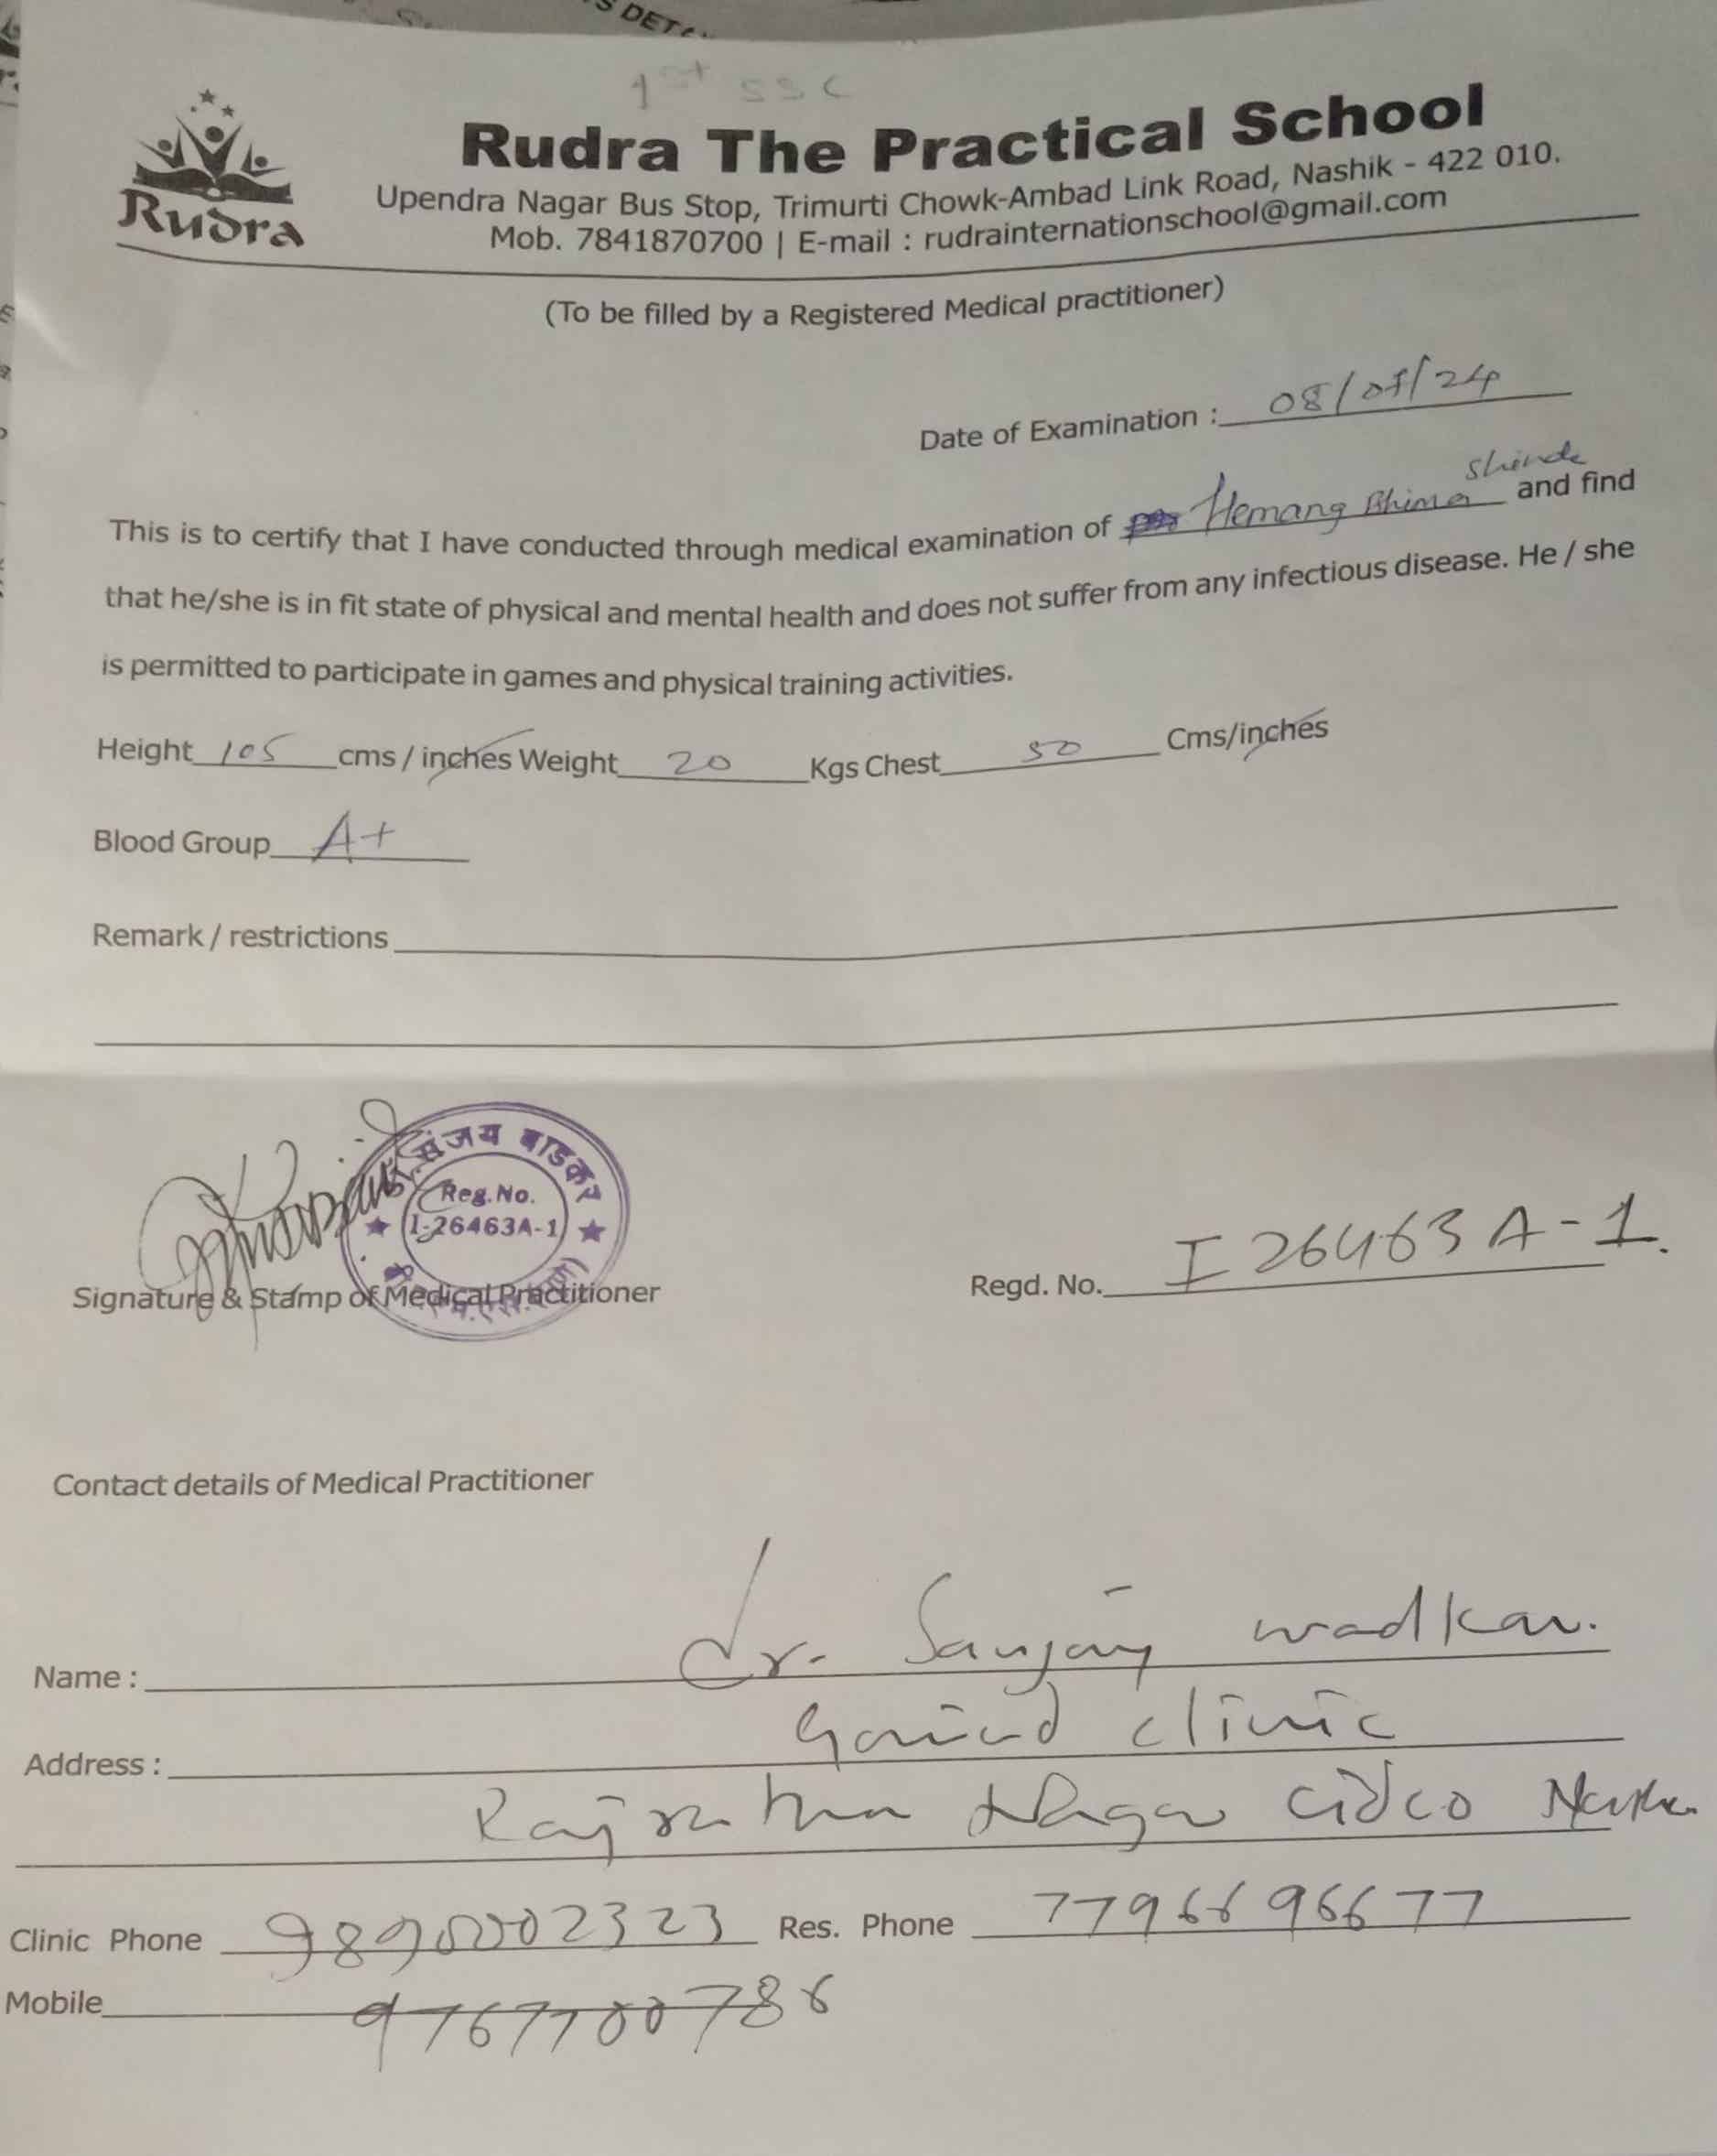 S DET
1st SSC
Rudra The Practical School
Rudra
Upendra Nagar Bus Stop, Trimurti Chowk-Ambad Link Road, Nashik - 422 010.
Mob. 7841870700 | E-mail : rudrainternationschool@gmail.com
(To be filled by a Registered Medical practitioner)
Date of Examination : 08/07/24
Shinde
This is to certify that I have conducted through medical examination of Hemang Bhima and find
that he/she is in fit state of physical and mental health and does not suffer from any infectious disease. He / she
is permitted to participate in games and physical training activities.
Height 105 cms / inches Weight 20 Kgs Chest 50 Cms/inches
Blood Group A+
Remark / restrictions
संजय वाडकर
Reg.No.
I-26463A-1
Signature & Stamp of Medical Practitioner
Regd. No. I 26463 A-1.
Contact details of Medical Practitioner
Name : Dr. Sanjay wadkar.
Address : Govind clinic
Rajratna Nagar cidco Nashik
Clinic Phone 9890002323 Res. Phone 7796696677
Mobile 9767700786